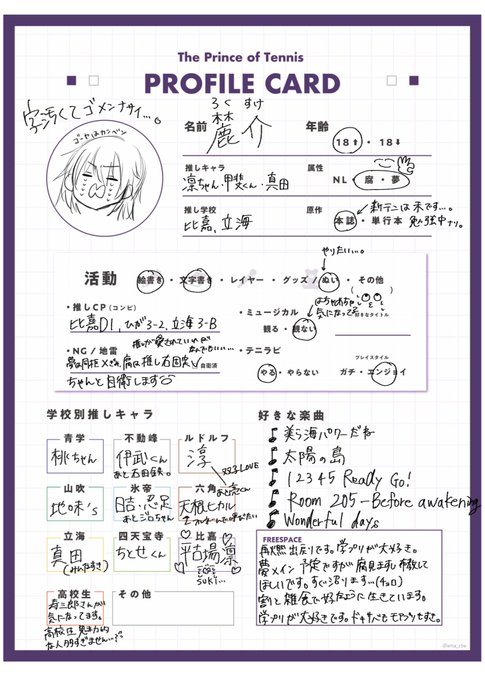 The Prince of Tennis
PROFILE CARD
字汚くてゴメンナサイ…。
ゴーヤはカンベン
ろく すけ
名前 麓介
年齢
18↑・18↓
推しキャラ
凛ちゃん・甲斐くん・真田
属性
ここ
NL・腐・夢
推し学校
比嘉、立海
原作
新テニは未です…。
本誌・単行本 勉強中ナリ。
やりたい…。
活動 絵書き・文字書き・レイヤー・グッズ/ぬい・その他
・推しCP(コンビ)
比嘉D1、ひが3-2、立海3-B
・ミュージカル
気になってる
好きなタイトル
観る・観ない
・NG / 地雷
推しが愛されていれば
なんでもいい…
自衛済
ちゃんと自衛します
・テニラビ
やる・やらない
プレイスタイル
ガチ・エンジョイ
学校別推しキャラ
青学
桃ちゃん
不動峰
伊武くん
あと石田鉄。
ルドルフ
淳
双子LOVE
山吹
地味's
氷帝
日吉・忍足
あとジロちゃん
六角
あと亮くん
天根ヒカル
立海
真田
(みんなすき)
四天宝寺
ちとせくん
比嘉
平古場凛
SUKI…
高校生
寿三郎さんが
気になってます。
高校生魅力的
な人多すぎません…??
その他
好きな楽曲
美ら海パワーだね
太陽の島
1 2 3 4 5 Ready Go!
Room 205-Before awakening
Wonderful days
FREESPACE
再燃出戻りです。学プリが大好き。
夢メイン予定ですが腐見ます布教して
ほしいです。すぐ沼ります…(チョロ)
割と雑食で好きなように生きています。
学プリが大好きです。ドキサバもモアプリもすき。